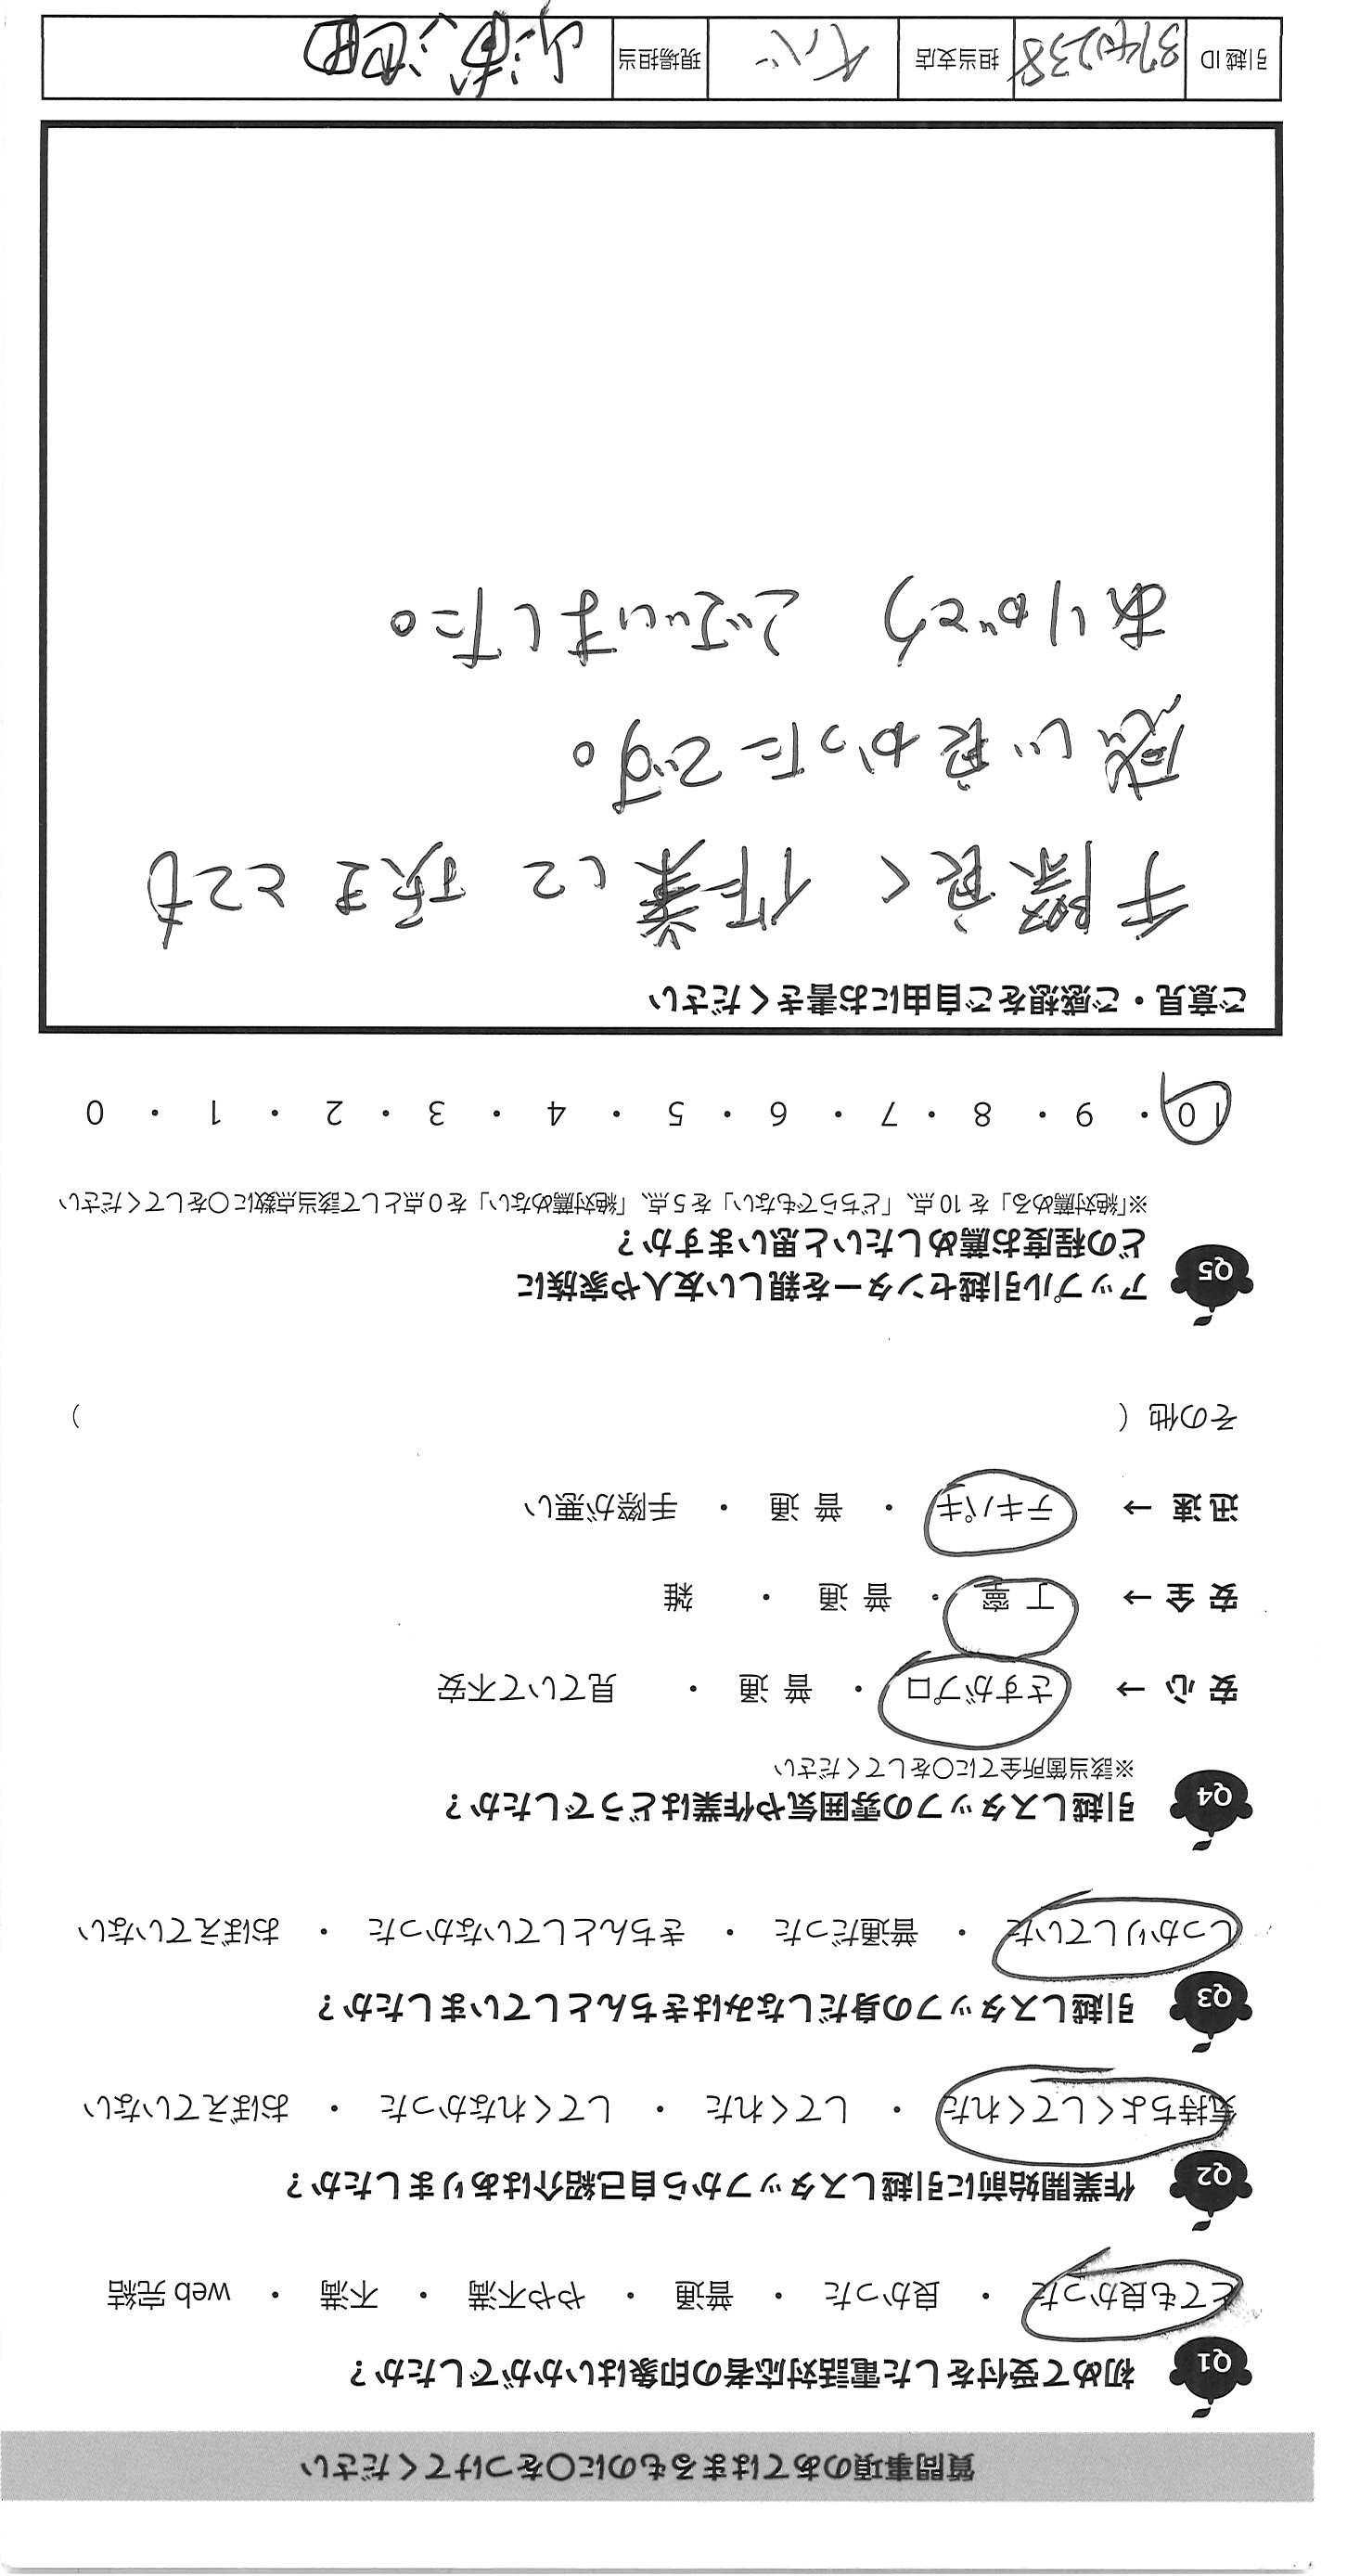 質問事項のあてはまるものに○をつけてください
Q1 初めて受付をした電話対応者の印象はいかがでしたか？
とても良かった ・ 良かった ・ 普通 ・ やや不満 ・ 不満 ・ web 完結
Q2 作業開始前に引越しスタッフから自己紹介はありましたか？
気持ちよくしてくれた ・ してくれた ・ してくれなかった ・ おぼえていない
Q3 引越しスタッフの身だしなみはきちんとしていましたか？
しっかりしていた ・ 普通だった ・ きちんとしていなかった ・ おぼえていない
Q4 引越しスタッフの雰囲気や作業はどうでしたか？
※該当箇所全てに○をしてください
安 心 → さすがプロ ・ 普 通 ・ 見ていて不安
安 全 → 丁 寧 ・ 普 通 ・ 雑
迅 速 → テキパキ ・ 普 通 ・ 手際が悪い
その他（ ）
Q5 アップル引越センターを親しい友人や家族に
どの程度お薦めしたいと思いますか？
※「絶対薦める」を 10 点、「どちらでもない」を 5 点、「絶対薦めない」を 0 点として該当点数に○をしてください
10 ・ 9 ・ 8 ・ 7 ・ 6 ・ 5 ・ 4 ・ 3 ・ 2 ・ 1 ・ 0
ご意見・ご感想をご自由にお書きください
手際良く 作業して 頂き とても
感じ良かったです。
ありがとう ございました。
引越 ID 担当支店 現場担当